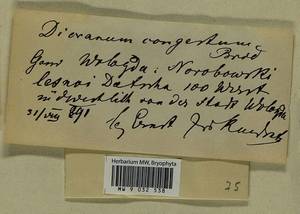 Dicranum congestum
Brid
Gouv Wologda: Norobowski
lesnoi Datscha 100 Werst
südwestlich von der Stadt Wologda
31/VIII 891
leg Ernst
Herbarium MW, Bryophyta
MW 9 032 538
25